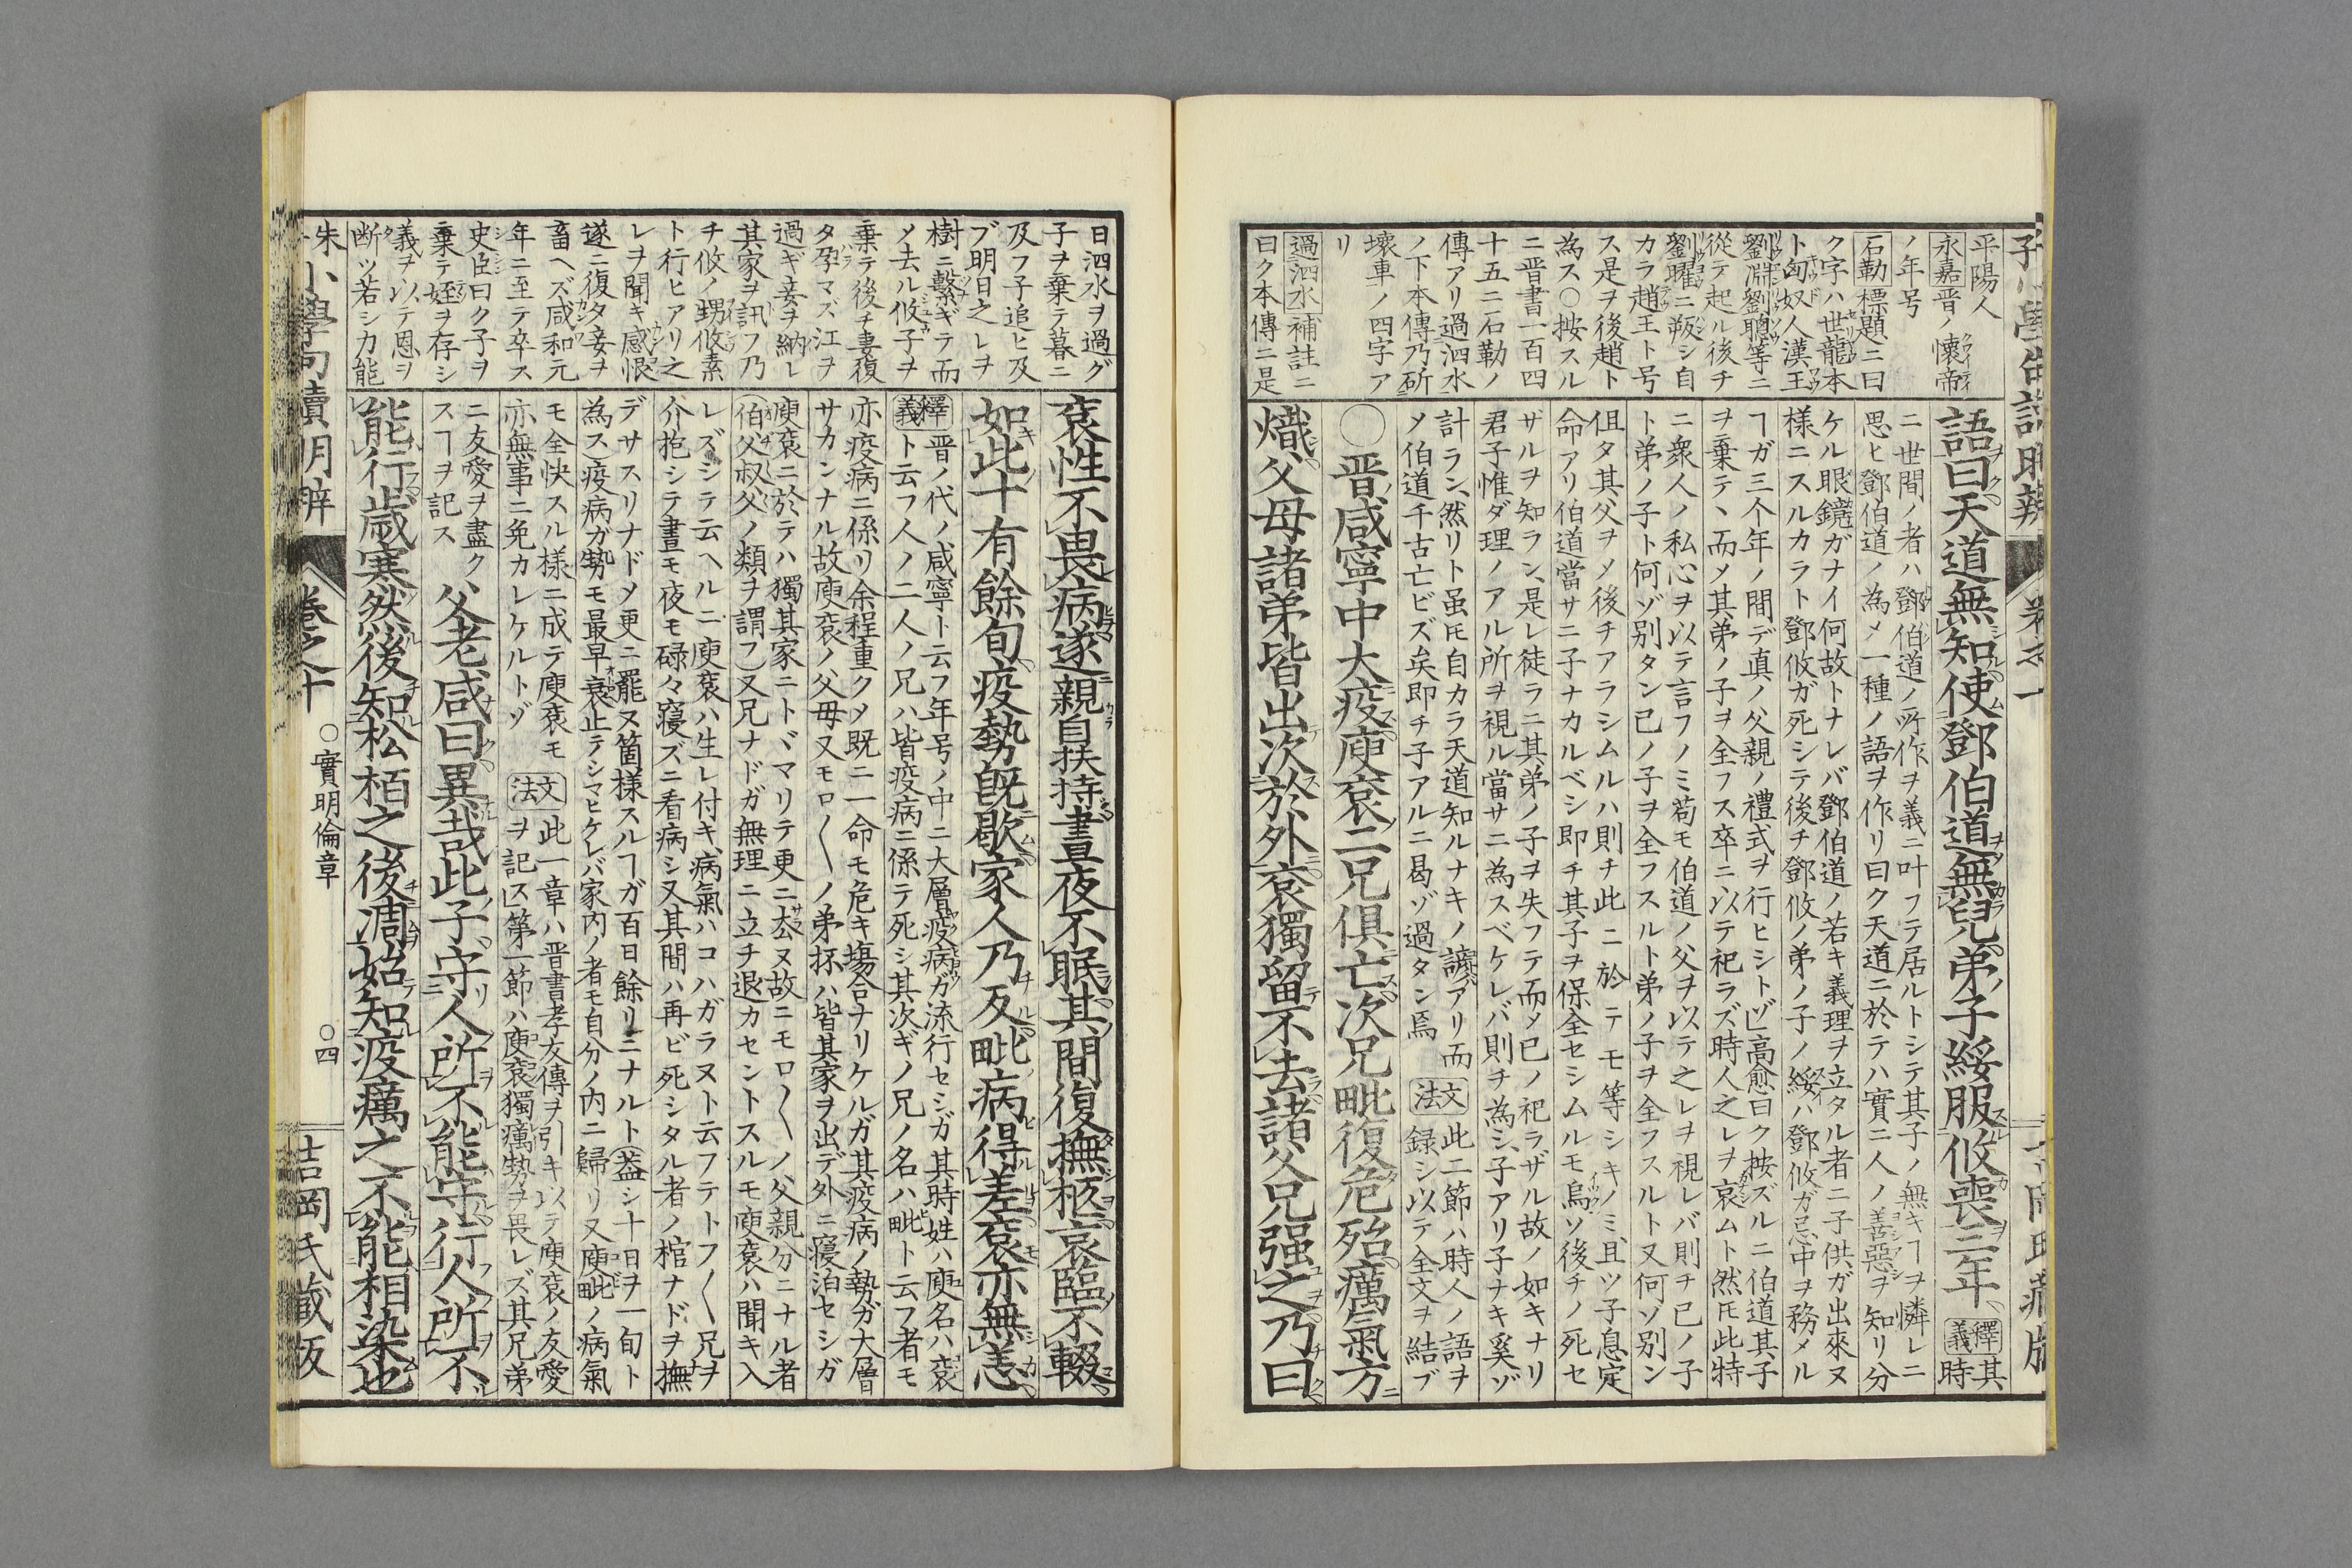 平陽人
永嘉晋ノ懷帝
ノ年号
石勒標題ニ曰
ク字ハ世龍本
ト匈奴人漢王
劉淵劉聰等ニ
從テ起ル後チ
劉曜ニ叛シ自
カラ趙王ト号
ス是ヲ後趙ト
為ス○按スル
ニ晋書一百四
十五ニ石勒ノ
傳アリ過泗水
ノ下本傳乃斫
壞車ノ四字ア
リ
過泗水補註ニ
曰ク本傳ニ是
語曰天道無知使鄧伯道無兒弟子綏服攸喪三年
釋義其時
ニ世間ノ者ハ鄧伯道ノ所作ヲ義ニ叶フテ居ルトシテ其子ノ無キヿヲ憐レニ
思ヒ鄧伯道ノ為メ一種ノ語ヲ作リ曰ク天道ニ於テハ實ニ人ノ善惡ヲ知リ分
ケル眼鏡ガナイ何故トナレバ鄧伯道ノ若キ義理ヲ立タル者ニ子供ガ出來ヌ
樣ニスルカラト鄧攸ガ死シテ後チ鄧攸ノ弟ノ子ノ綏ハ鄧攸ガ忌中ヲ務メル
ヿガ三个年ノ間デ真ノ父親ノ禮式ヲ行ヒシトゾ高愈曰ク按ズルニ伯道其子
ヲ棄テヽ而メ其弟ノ子ヲ全フス卒ニ以テ祀ラズ時人之レヲ哀ムト然𪜈此特
ニ衆人ノ私心ヲ以テ言フノミ苟モ伯道ノ父ヲ以テ之レヲ視レバ則チ已ノ子
ト弟ノ子ト何ゾ別タン已ノ子ヲ全フスルト弟ノ子ヲ全フスルト又何ゾ別ン
伹タ其父ヲメ後チアラシムルハ則チ此ニ於テモ等シキノミ且ツ子息定
命アリ伯道當サニ子ナカルベシ即チ其子ヲ保全セシムルモ烏ソ後チノ死セ
ザルヲ知ラン是レ徒ラニ其弟ノ子ヲ失フテ而メ已ノ祀ラザル故ノ如キナリ
君子惟ダ理ノアル所ヲ視ル當サニ為スベケレバ則チ為シ子アリ子ナキ奚ゾ
計ラン然リト虽𪜈自カラ天道知ルナキノ謗アリ而
メ伯道千古亡ビズ矣即チ子アルニ曷ゾ過タン焉
文法此二節ハ時人ノ語ヲ
録シ以テ全文ヲ結ブ
○晋咸寧中大疫庾袞二兄俱亡次兄毗復危殆癘氣方
熾父母諸弟皆出次於外袞獨留不去諸父兄强之乃曰
日泗水ヲ過グ
子ヲ棄テ暮ニ
及フ子追ヒ及
ブ明日之レヲ
樹ニ繫ギテ而
メ去ル攸子ヲ
棄テ後チ妻復
タ孕マズ江ヲ
過ギ妾ヲ納レ
其家ヲ訊フ乃
チ攸ノ甥攸素
ト行ヒアリ之
レヲ聞キ感恨
遂ニ復タ妾ヲ
畜ヘズ咸和元
年ニ至テ卒ス
史臣曰ク子ヲ
棄テ姪ヲ存シ
義ヲ以テ恩ヲ
断ツ若シ力能
袞性不畏病遂親自扶持晝夜不眠其間復撫柩哀臨不輟
如此十有餘旬疫勢旣歇家人乃反毗病得差袞亦無恙
釋義晋ノ代ノ咸寧ト云フ年号ノ中ニ大層疫病ガ流行セシガ其時姓ハ庾名ハ袞
ト云フ人ノ二人ノ兄ハ皆疫病ニ係テ死シ其次ギノ兄ノ名ハ毗ト云フ者モ
亦疫病ニ係リ余程重クメ既ニ一命モ危キ塲合ナリケルガ其疫病ノ勢ガ大層
サカンナル故庾袞ノ父母又モロ〱ノ弟抔ハ皆其家ヲ出デ外ニ寢泊セシガ
庾袞ニ於テハ獨其家ニトヾマリテ更ニ厺ヌ故ニモロ〱ノ父親分ニナル者
(伯父叔父ノ類ヲ謂フ)又兄ナドガ無理ニ立チ退カセントスルモ庾袞ハ聞キ入
レズシテ云ヘルニ庾袞ハ生レ付キ病氣ハコハガラヌト云フテトフ〱兄ヲ
介抱シテ晝モ夜モ碌々寢ズニ看病シ又其間ハ再ビ死シタル者ノ棺ナドヲ撫
デサスリナドメ更ニ罷ヌ箇樣スルヿガ百日餘リニナルト(葢シ十日ヲ一旬ト
為ス)疫病ガ勢モ最早衰止テシマヒケレバ家内ノ者モ自分ノ内ニ歸リ又庾毗ノ病氣
モ全快スル樣ニ成テ庾袞モ
亦無事ニ免カレケルトゾ
文法此一章ハ晋書孝友傳ヲ引キ以テ庾袞ノ友愛
ヲ記ス第一節ハ庾袞獨癘勢ヲ畏レズ其兄弟
ニ友愛ヲ盡ク
スヿヲ記ス
父老咸曰異哉此子守人所不能守行人所不
能行歲寒然後知松栢之後凋始知疫癘之不能相染也
朱子小學句讀明辨
卷之十
○實明倫章
○四
吉岡氏藏版